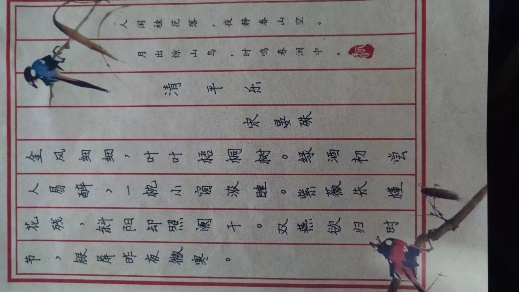 人闲桂花落，夜静春山空。
月出惊山鸟，时鸣春涧中。
清平乐
宋 晏殊
金风细细，叶叶梧桐树。绿酒初尝
人易醉，一枕小窗浓睡。紫薇朱槿
花残，斜阳却照澜干。双燕欲归时
节，银屏昨夜微寒。